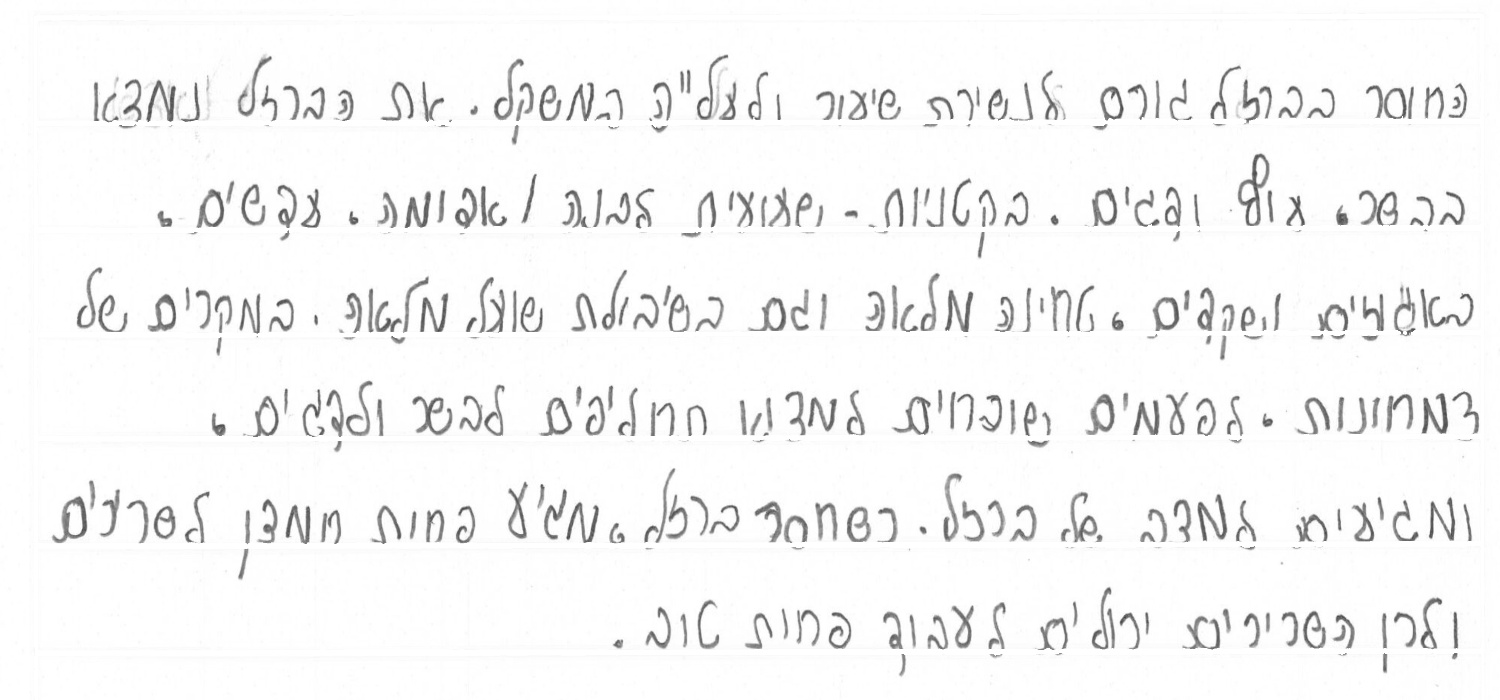 מחוסר בברזל גורם לנשירת שיער ולעל"ה במשקל. את הברזל נמצא
בבשר, עוף ודגים. בקטניות - שעועית לבנה / אדומה, עדשים,
באגוזים ושקדים, טחינה מלאה וגם בשיבולת שועל מלאה. במקרים של
צמחונות. לפעמים שוכחים למצוא תחליפים לבשר ולדגים,
ומגיעים למצב של ברזל. כשחסר ברזל, מגיע פחות חמצן לשרירים
ולכן השרירים יכולים לעבוד פחות טוב.